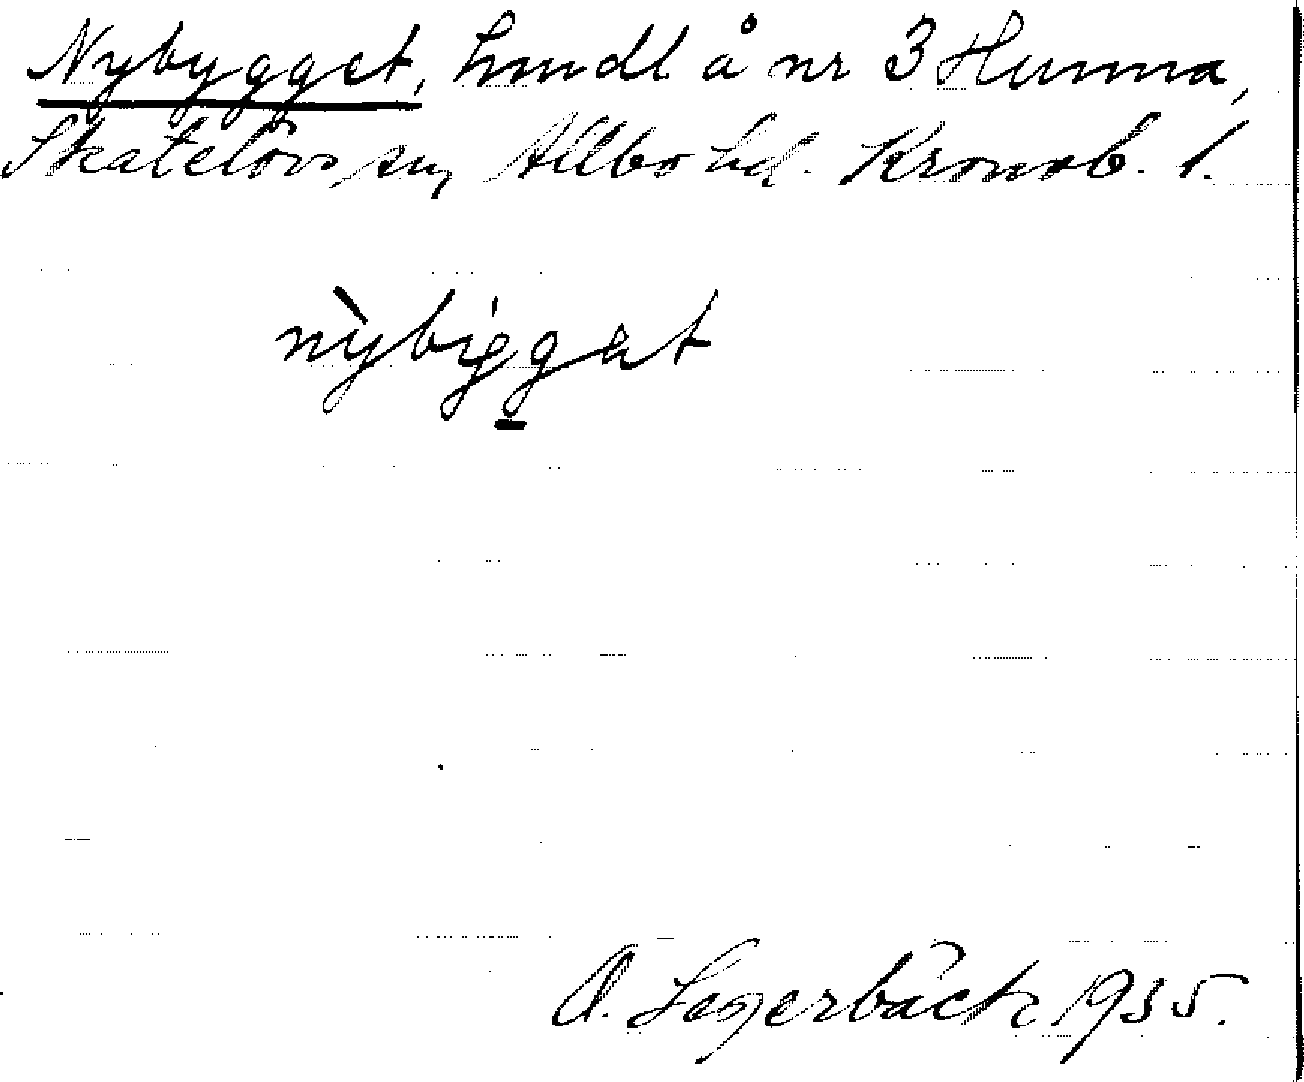 Nybygget, hmdl å nr 3 Hunna,
Skatelövs sn, Allbo hd. Kronob. l.
nỳbigget
O. Lagerbäck 1935.